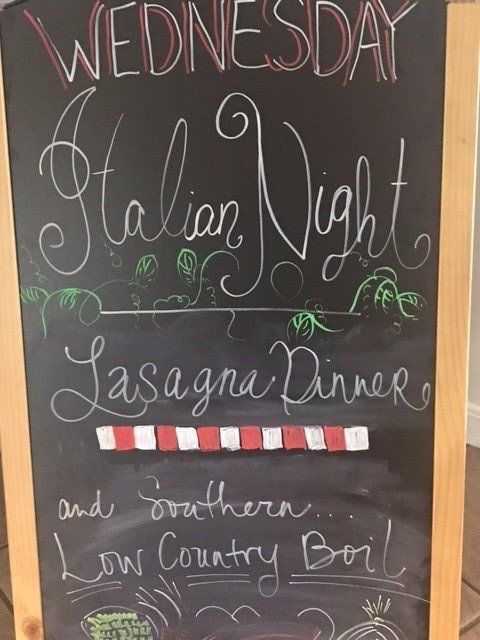 WEDNESDAY
Italian Night
Lasagna Dinner
and Southern....
Low Country Boil